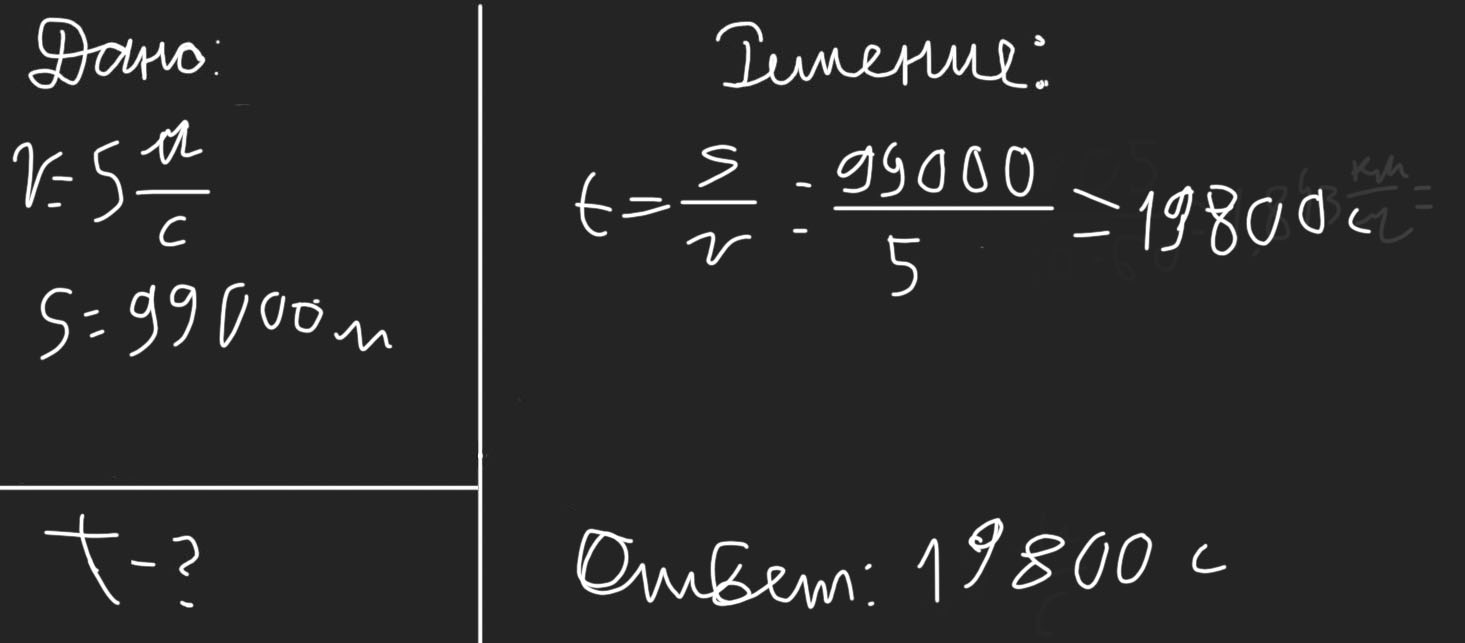 Дано:
v = 5 м/с
S = 99000 м
t - ?
Решение:
t = S/v = 99000/5 = 19800 с
Ответ: 19800 с